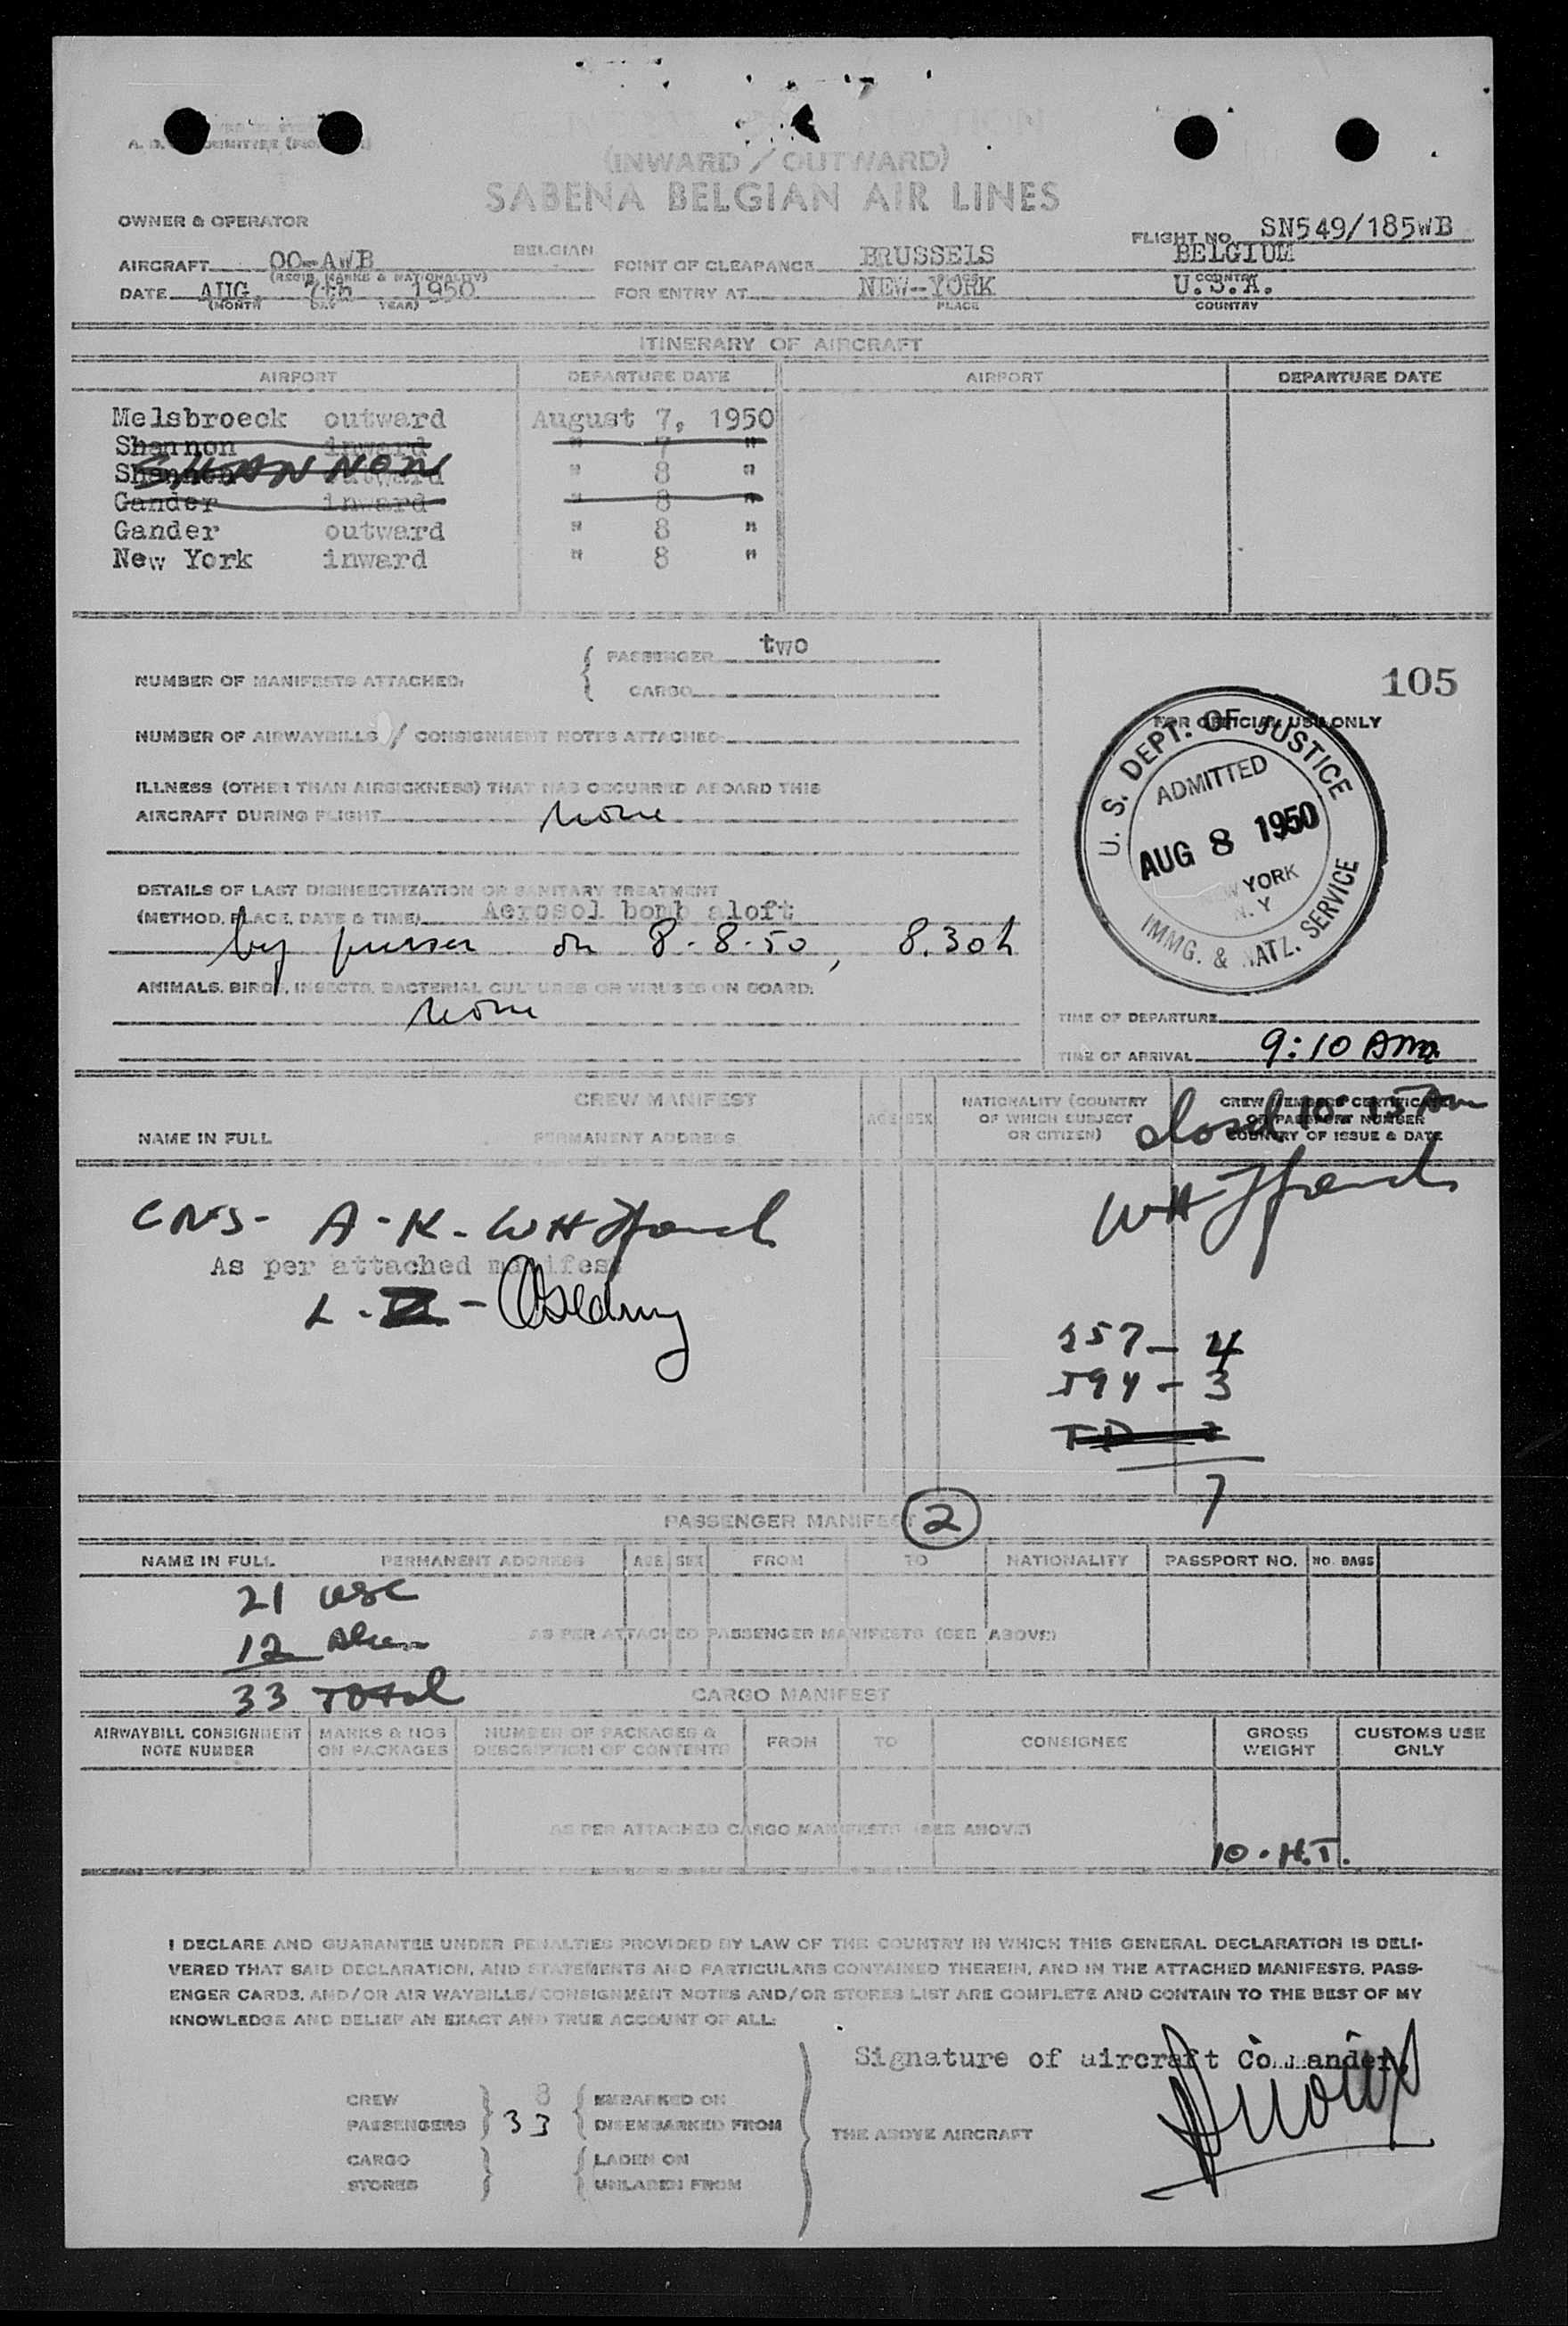 (INWARD / OUTWARD)
SABENA BELGIAN AIR LINES
OWNER & OPERATOR
FLIGHT NO. SN549/185WB
AIRCRAFT OO-AWB BELGIAN POINT OF CLEARANCE BRUSSELS BELGIUM
(REGIS. MARKS & NATIONALITY) PLACE COUNTRY
DATE AUG 7th 1950 FOR ENTRY AT NEW-YORK U.S.A.
(MONTH DAY YEAR) PLACE COUNTRY
ITINERARY OF AIRCRAFT
AIRPORT DEPARTURE DATE AIRPORT DEPARTURE DATE
Melsbroeck outward August 7, 1950
Shannon inward " 7 "
Shannon outward " 8 "
SHANNON
Gander inward " 8 "
Gander outward " 8 "
New York inward " 8 "
NUMBER OF MANIFESTS ATTACHED:
PASSENGER two
CARGO
NUMBER OF AIRWAYBILLS / CONSIGNMENT NOTES ATTACHED:
ILLNESS (OTHER THAN AIRSICKNESS) THAT HAS OCCURRED ABOARD THIS
AIRCRAFT DURING FLIGHT none
DETAILS OF LAST DISINSECTIZATION OR SANITARY TREATMENT
(METHOD, PLACE, DATE & TIME) Aerosol bomb aloft
by purser on 8-8-50, 8.30h
ANIMALS, BIRDS, INSECTS, BACTERIAL CULTURES OR VIRUSES ON BOARD:
none
105
FOR OFFICIAL USE ONLY
U. S. DEPT. OF JUSTICE
ADMITTED
AUG 8 1950
NEW YORK
N. Y
IMMG. & NATZ. SERVICE
TIME OF DEPARTURE
TIME OF ARRIVAL 9:10 AM
closed 10 15 AM
CREW MANIFEST
NAME IN FULL PERMANENT ADDRESS AGE SEX NATIONALITY (COUNTRY OF WHICH SUBJECT OR CITIZEN) CREW MEMBERS CERTIFICATE OR PASSPORT NUMBER COUNTRY OF ISSUE & DATE
As per attached manifest
257 - 4
594 - 3
7
PASSENGER MANIFEST 2
NAME IN FULL PERMANENT ADDRESS AGE SEX FROM TO NATIONALITY PASSPORT NO. NO. BAGS
21 USC
12 Alien
AS PER ATTACHED PASSENGER MANIFESTS (SEE ABOVE)
33 Total
CARGO MANIFEST
AIRWAYBILL CONSIGNMENT NOTE NUMBER MARKS & NOS ON PACKAGES NUMBER OF PACKAGES & DESCRIPTION OF CONTENTS FROM TO CONSIGNEE GROSS WEIGHT CUSTOMS USE ONLY
AS PER ATTACHED CARGO MANIFESTS (SEE ABOVE)
10. H.T.
I DECLARE AND GUARANTEE UNDER PENALTIES PROVIDED BY LAW OF THE COUNTRY IN WHICH THIS GENERAL DECLARATION IS DELI-
VERED THAT SAID DECLARATION, AND STATEMENTS AND PARTICULARS CONTAINED THEREIN, AND IN THE ATTACHED MANIFESTS, PASS-
ENGER CARDS, AND/OR AIR WAYBILLS/CONSIGNMENT NOTES AND/OR STORES LIST ARE COMPLETE AND CONTAIN TO THE BEST OF MY
KNOWLEDGE AND BELIEF AN EXACT AND TRUE ACCOUNT OF ALL:
Signature of aircraft Commander
CREW 8 EMBARKED ON
PASSENGERS 33 DISEMBARKED FROM
THE ABOVE AIRCRAFT
CARGO LADEN ON
STORES UNLADEN FROM